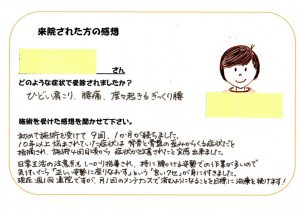 来院された方の感想
さん
どのような症状で受診されましたか?
ひどい肩こり、腰痛、度々起きるぎっくり腰
施術を受けた感想を聞かせて下さい。
初めて施術を受けて9回、1か月が経ちました。
10年以上悩まされていた症状は背骨と骨盤の歪みからくる症状だと
指摘され、施術4回目頃から症状が改善されたこと実感出来ました。
日常生活の注意もしっかり指導され、特に腰かける姿勢での仕事が多いので
気付いたら「正しい姿勢に座りなおす」という「良いクセ」が身に付きました。
現在週1回通院ですが、月1回のメンテナンスで済むようになることを目標に治療を続けます!